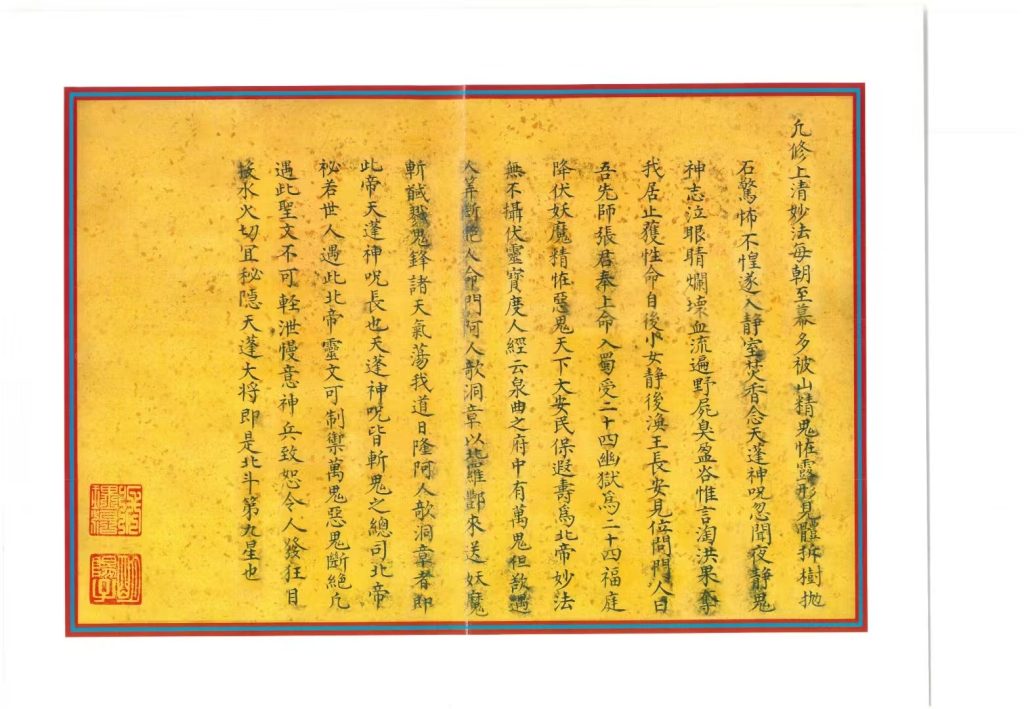 凢修上清妙法每朝至幕多被山精鬼恠露形見體拆樹拋
石驚怖不惶遂入静室焚香念天蓬神呪忽聞夜静鬼
神志泣眼睛爛壊血流遍野屍臭盈谷惟言淘洪果奪
我居止獲性命自後小女静後漁王長安見位問門人曰
吾先師張君奉上命入蜀受二十四幽獄為二十四福庭
降伏妖魔精恠惡鬼天下大安民保遐壽為北帝妙法
無不攝伏靈寳度人經云泉曲之府中有萬鬼但欲遇
人筭斷絶人命門阿人歌洞章以攝羅酆來送妖魔
斬馘戮鬼鋒諸天氣蕩我道日隆阿人歌洞章者即
此帝天蓬神呪長也天蓬神呪皆斬鬼之總司北帝
祕若世人遇此北帝靈文可制禦萬鬼惡鬼斷絶凢
遇此聖文不可輊泄慢意神兵致恕令人發狂目
投水火切宜秘隱天蓬大将即是北斗第九星也